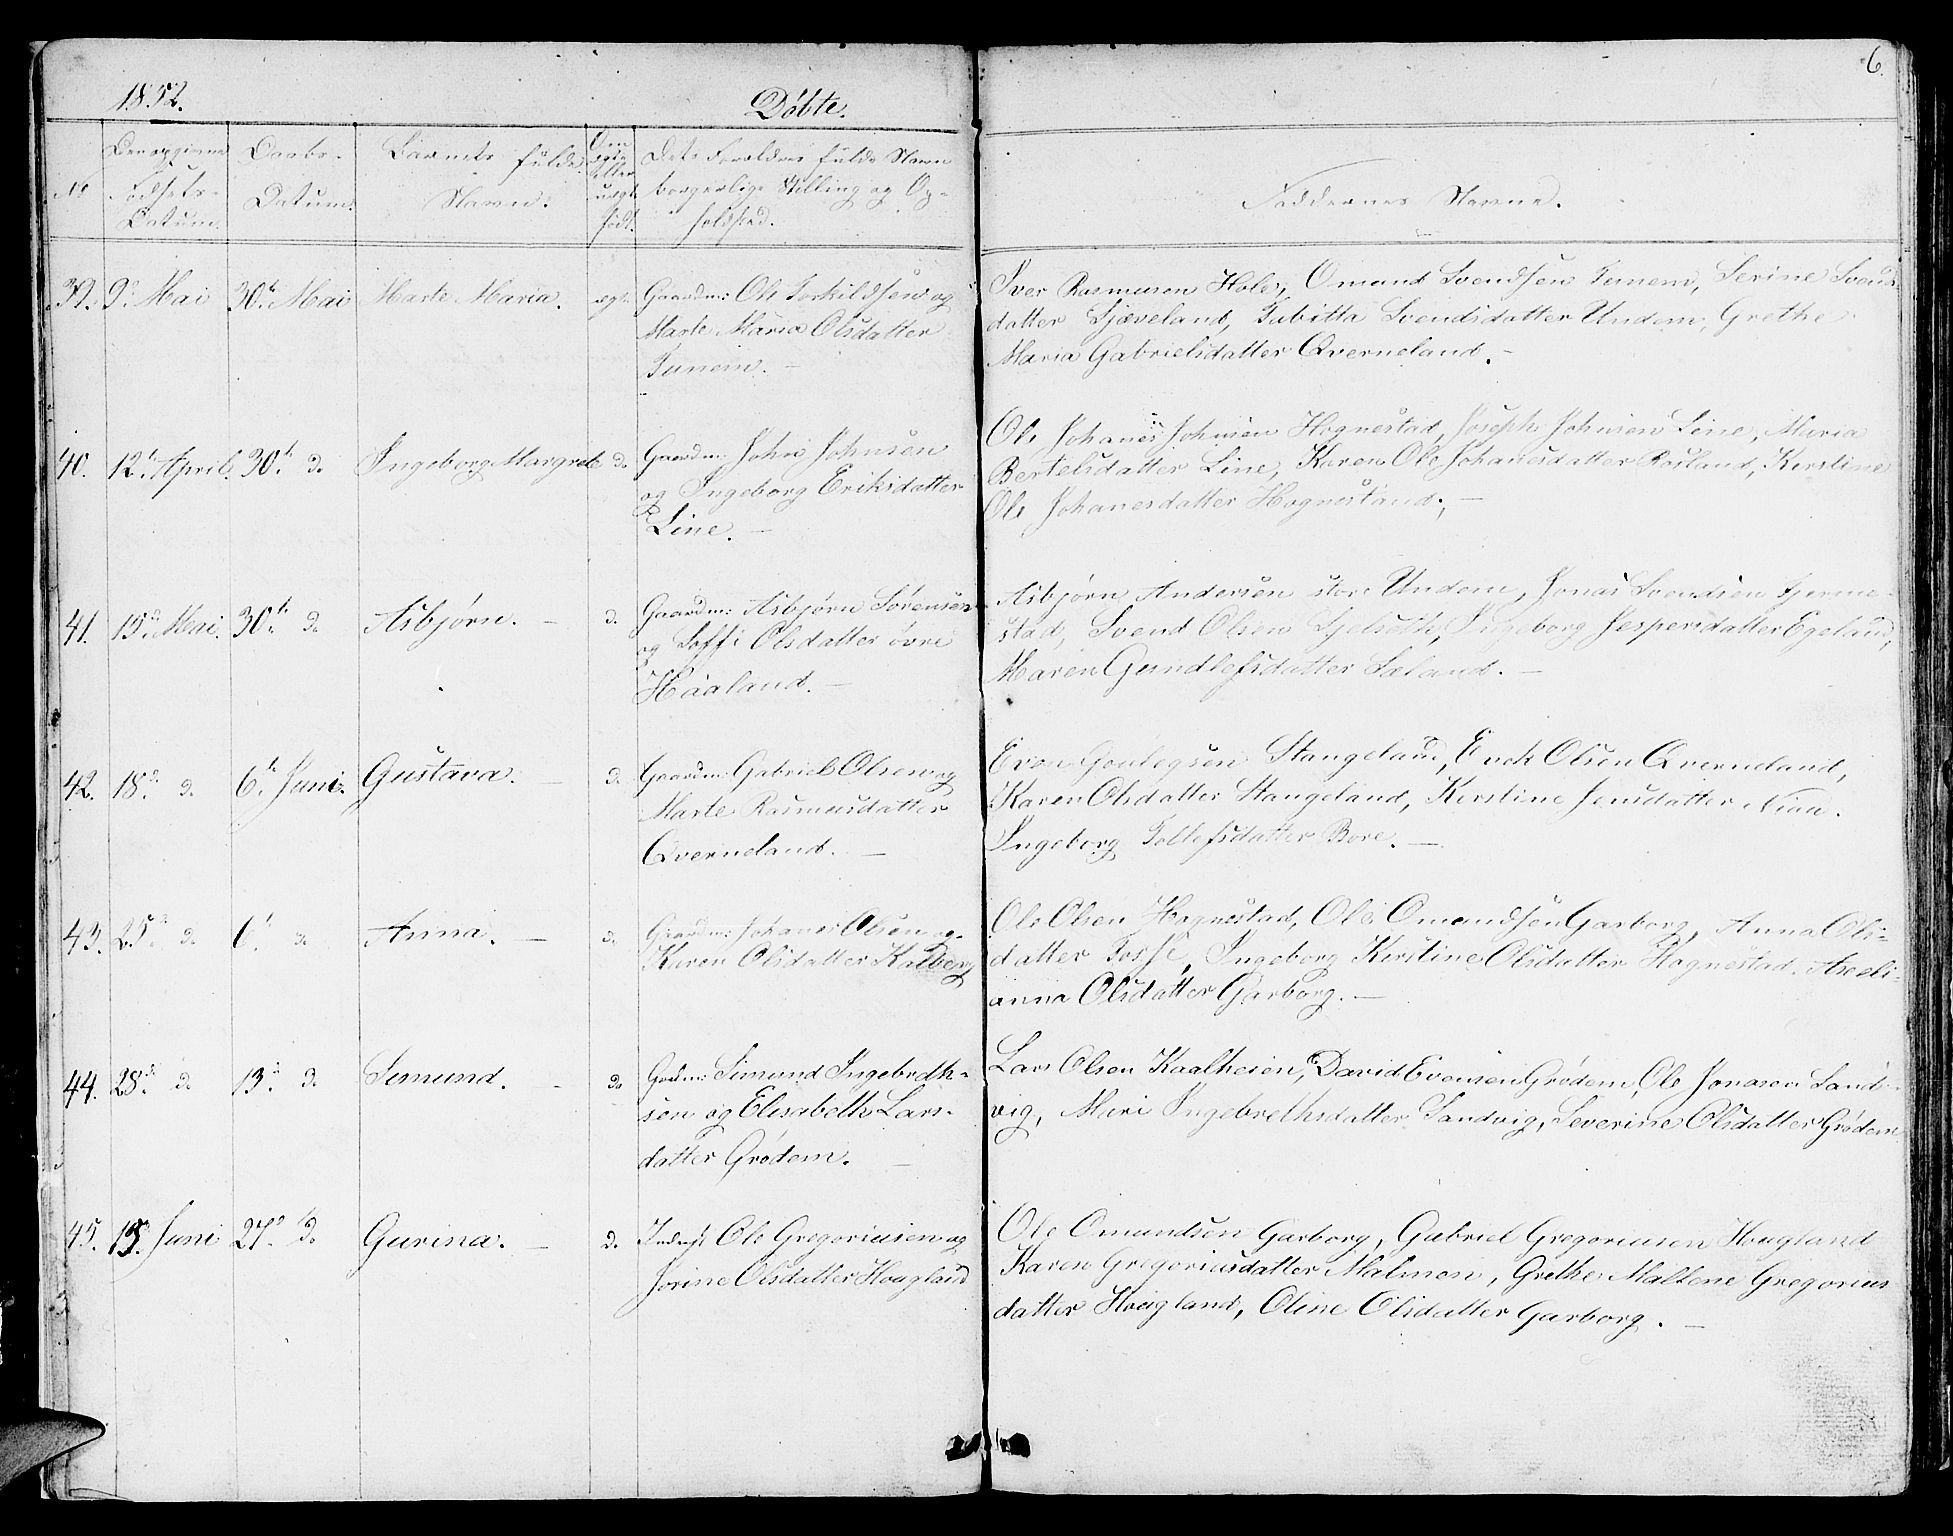 6.
1852.
Døbte.
No
Den opgivne
Fødsels-
Datum.
Daabs-
Datum.
Barnets fulde
Navn.
Om
ægte
eller
uægt.
født.
Dets Forældres fulde Navn
borgerlige Stilling og Op-
holdsted.
Faddernes Navne.
39. 9d Mai 30te Mai Marte Maria. ægt.
Gaardm: Ole Torkildsen og
Marte Maria Olsdatter
Tunem. -
Iver Rasmusen Hole, Omund Svendsen Tunem, Serine Svends
datter Sjæveland, Tabitta Svendsdatter Undem, Grethe
Maria Gabrielsdatter Qverneland. -
40. 12t April. 30t. do Ingeborg Margrete do
Gaardm: John Johnsen
og Ingeborg Eriksdatter
Line. -
Ole Johanes Johnsen Hognestad, Joseph Johnsen Line, Maria
Bertelsdatter Line, Karen Ole Johanesdatter Rosland, Kirstine
Ole Johanesdatter Hognestand. -
41. 15d Mai. 30te do Asbjørn. - do
Gaardm: Asbjørn Sørensen
og Soffi Olsdatter øvre
Haaland. -
Asbjørn Andersen store Undem, Jonas Svendsen Gjerme-
stad, Svend Olsen Sjelseth, Ingeborg Jespersdatter Egeland,
Maren Gundlefsdatter Sæland. -
42. 18d. do 6te Juni. Gustava. - do
Gaardm: Gabriel Olsen og
Marte Rasmusdatter
Qverneland. -
Stangeland, Olsen Qverneland,
Karen Olsdatter Stangeland, Kirstine Jensdatter
Ingeborg Tollefsdatter Bore. -
43. 25d do 6t do Anna. - do
Gaardm: Johanes Olsen og
Karen Olsdatter Kalberg
Ole Olsen Hognestad, Ole Omundsen Garborg, Anna Ols-
datter Fosse, Ingeborg Kirstine Olsdatter Hognestad. Axeli-
anna Olsdatter Garborg. -
44. 28d. do 13d. do Simund. - do
Grdm: Simund Ingebrdth-
sen og Elisabeth Lars-
datter Grødem. -
Lars Olsen Kaalheien, David Evensen Grødem, Ole Jonasen Sand-
vig, Mari Ingebrethsdatter Sandvig, Severine Olsdatter Grødem
45. 15. Juni 27d do Gurina. - do
Inderst Ole Gregoriusen og
Jorine Olsdatter Hougland
Ole Omundsen Garborg, Gabriel Gregoriusen Hougland
Karen Gregoriusdatter Malmon, Grethe Maltene Gregorius
datter Hougland, Oline Olsdatter Garborg. -